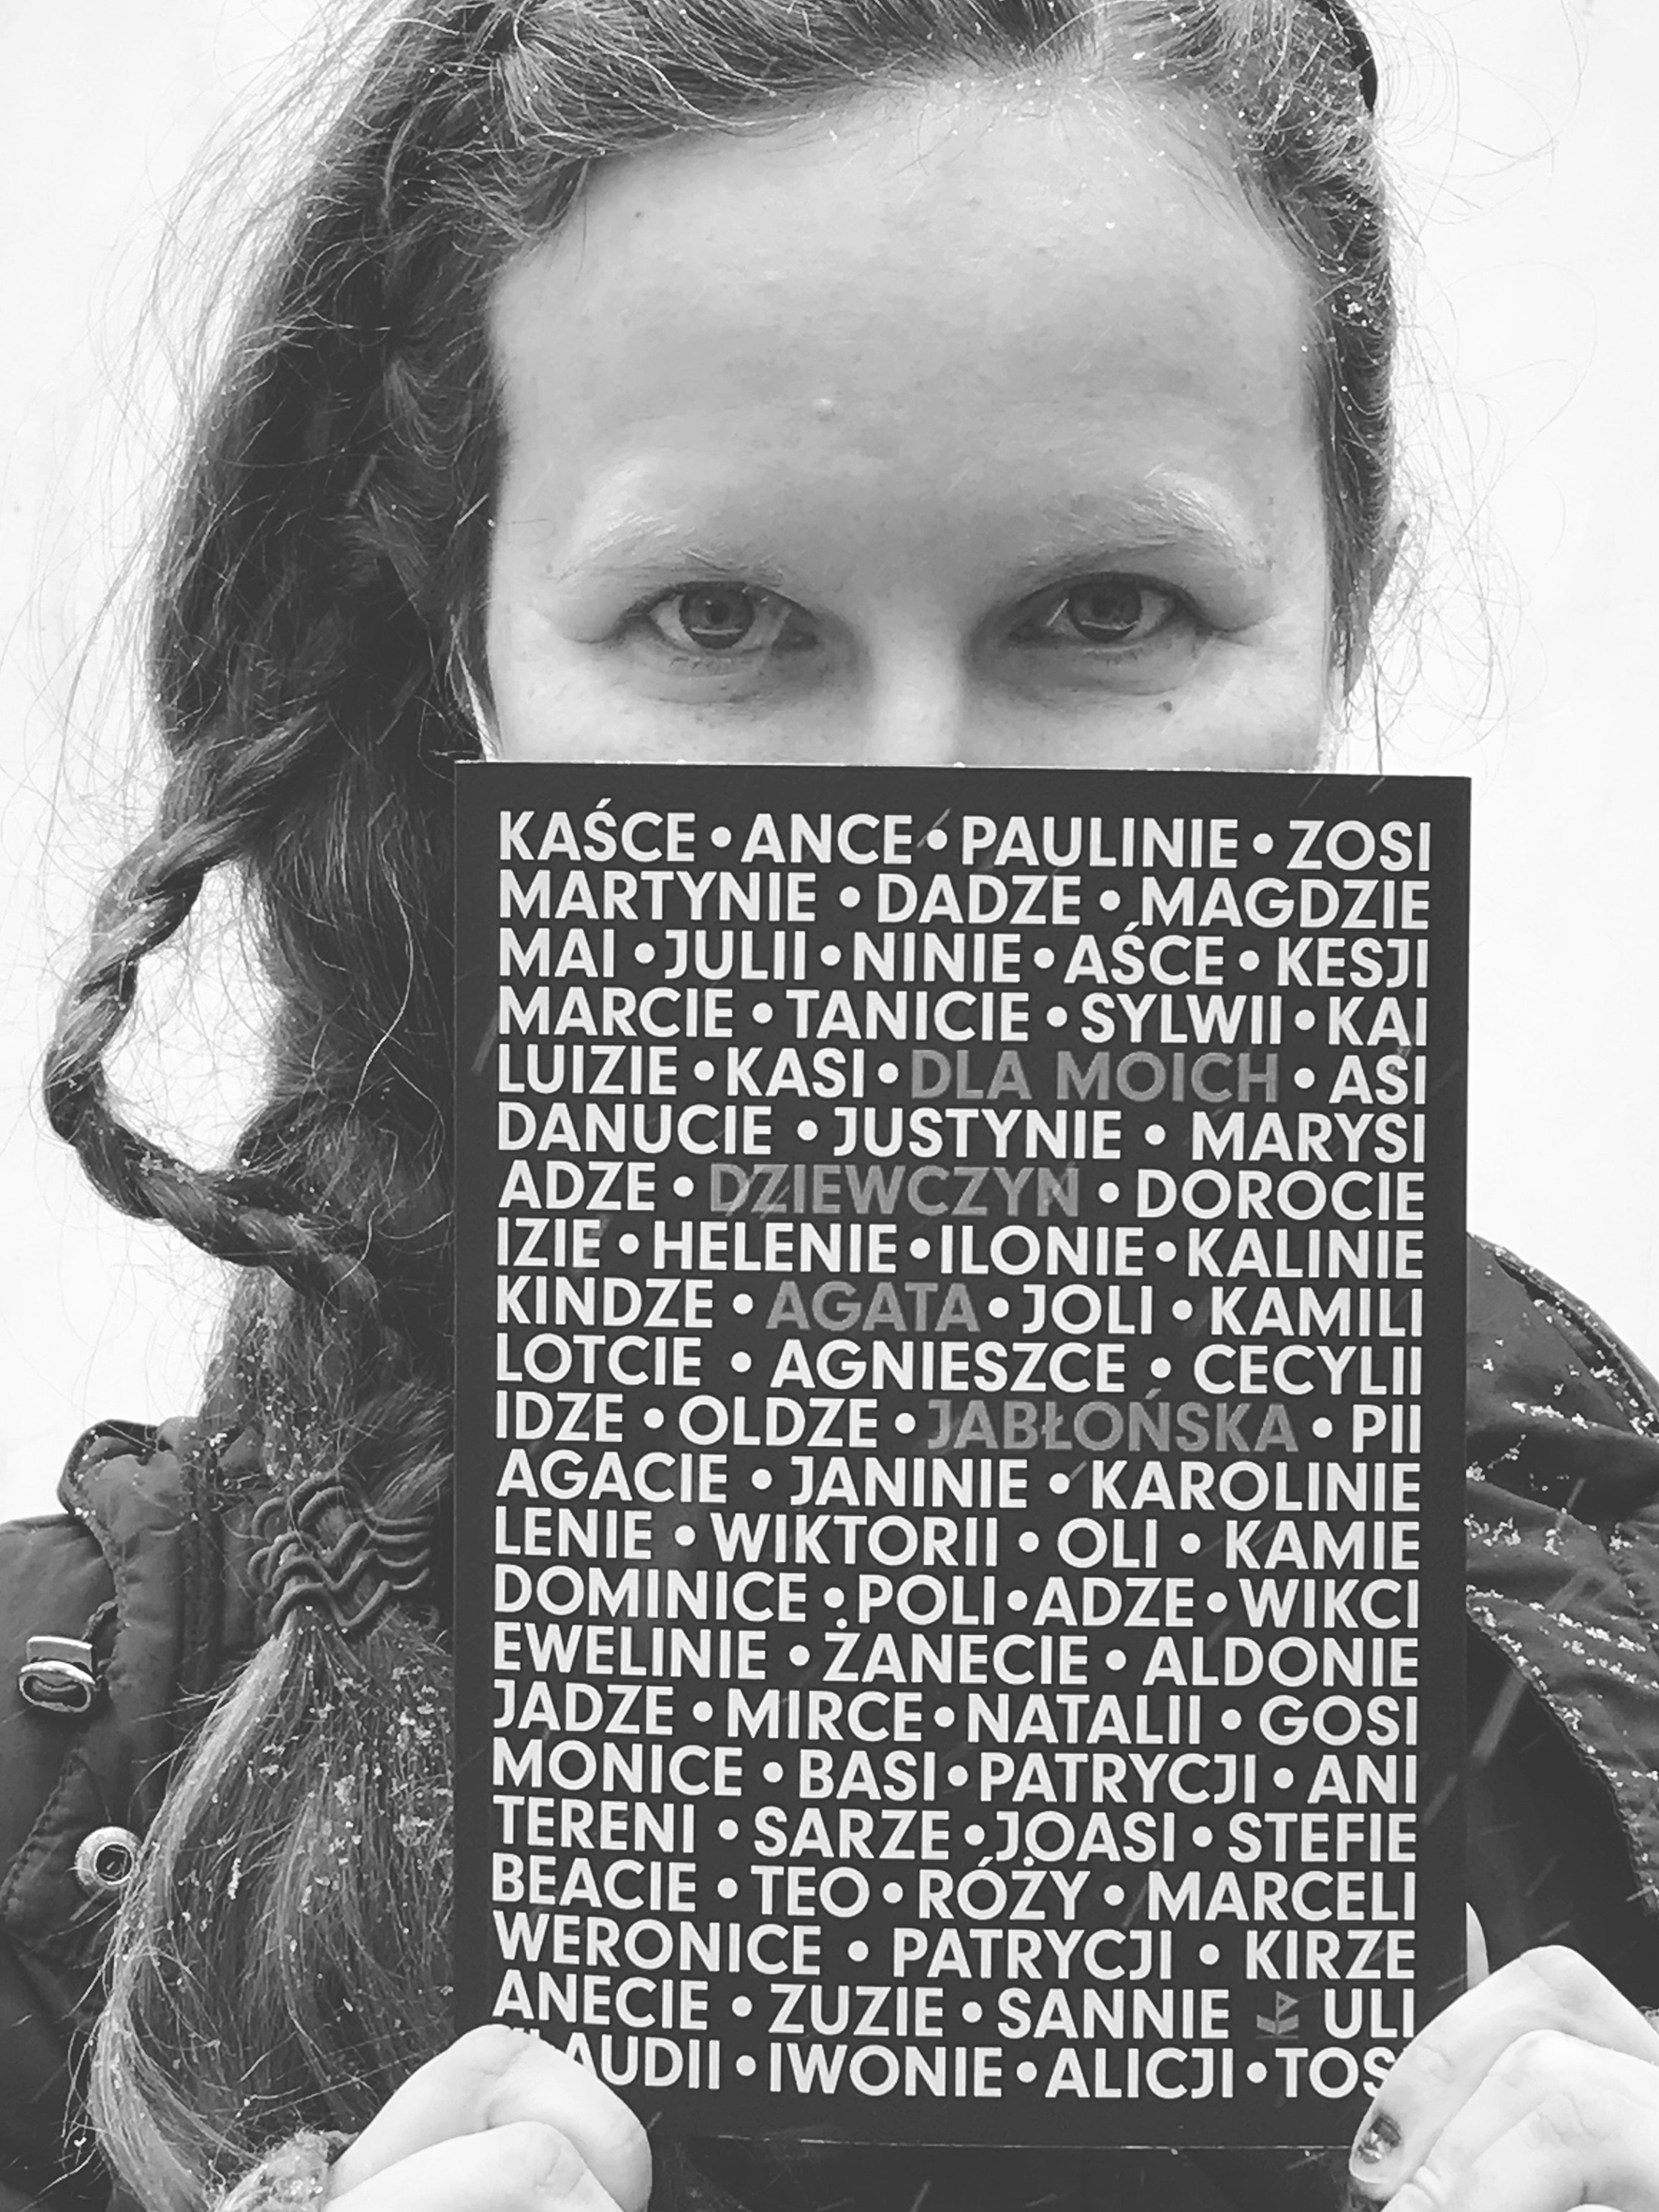 KAŚCE • ANCE • PAULINIE • ZOSI
MARTYNIE • DADZE • MAGDZIE
MAI • JULII • NINIE • AŚCE • KESJI
MARCIE • TANICIE • SYLWII • KAI
LUIZIE • KASI • DLA MOICH • ASI
DANUCIE • JUSTYNIE • MARYSI
ADZE • DZIEWCZYN • DOROCIE
IZIE • HELENIE • ILONIE • KALINIE
KINDZE • AGATA • JOLI • KAMILI
LOTCIE • AGNIESZCE • CECYLII
IDZE • OLDZE • JABŁOŃSKA • PII
AGACIE • JANINIE • KAROLINIE
LENIE • WIKTORII • OLI • KAMIE
DOMINICE • POLI • ADZE • WIKCI
EWELINIE • ŻANECIE • ALDONIE
JADZE • MIRCE • NATALII • GOSI
MONICE • BASI • PATRYCJI • ANI
TERENI • SARZE • JOASI • STEFIE
BEACIE • TEO • RÓŻY • MARCELI
WERONICE • PATRYCJI • KIRZE
ANECIE • ZUZIE • SANNIE ULI
IWONIE • ALICJI